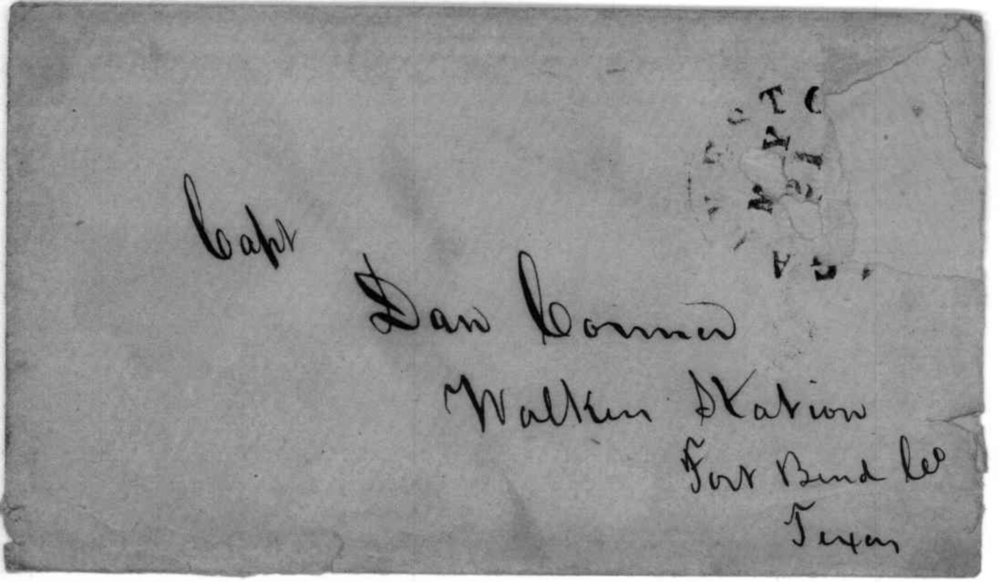 Capt
Dan Connor
Walker Station
Fort Bend Co
Texas